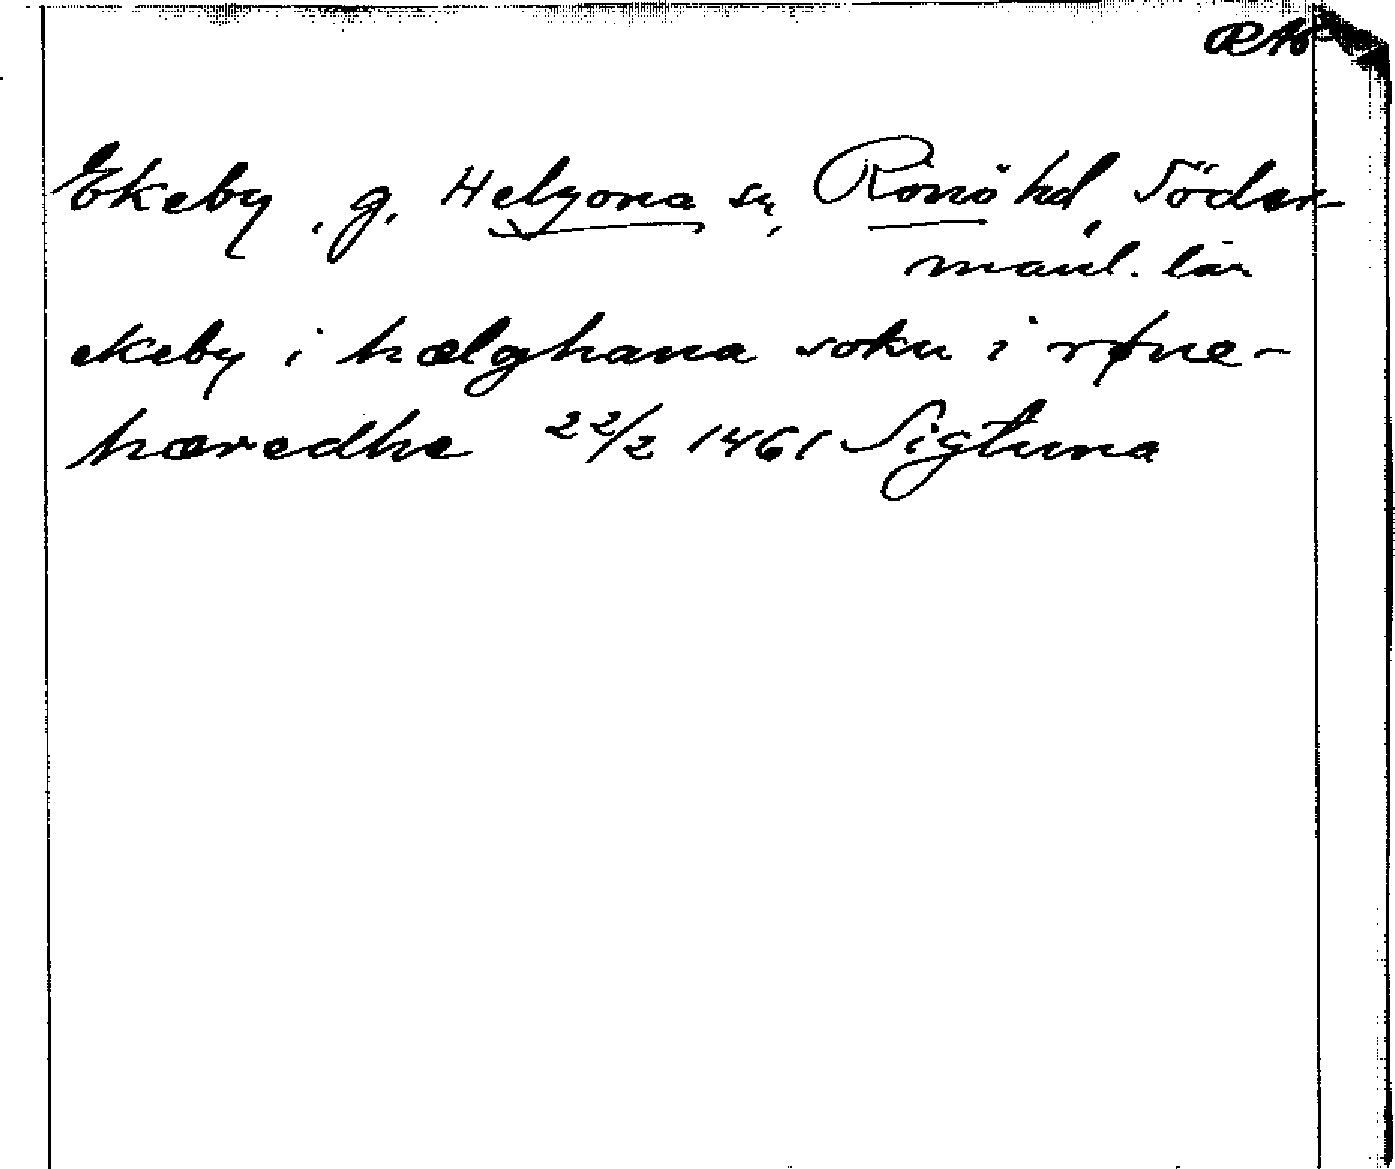 Ekeby, g. Helgona sn, Rönö hd, Söder-
manl. län
ekeby i hælghana sokn i røne-
hæredhe 22/2 1461 Sigtuna